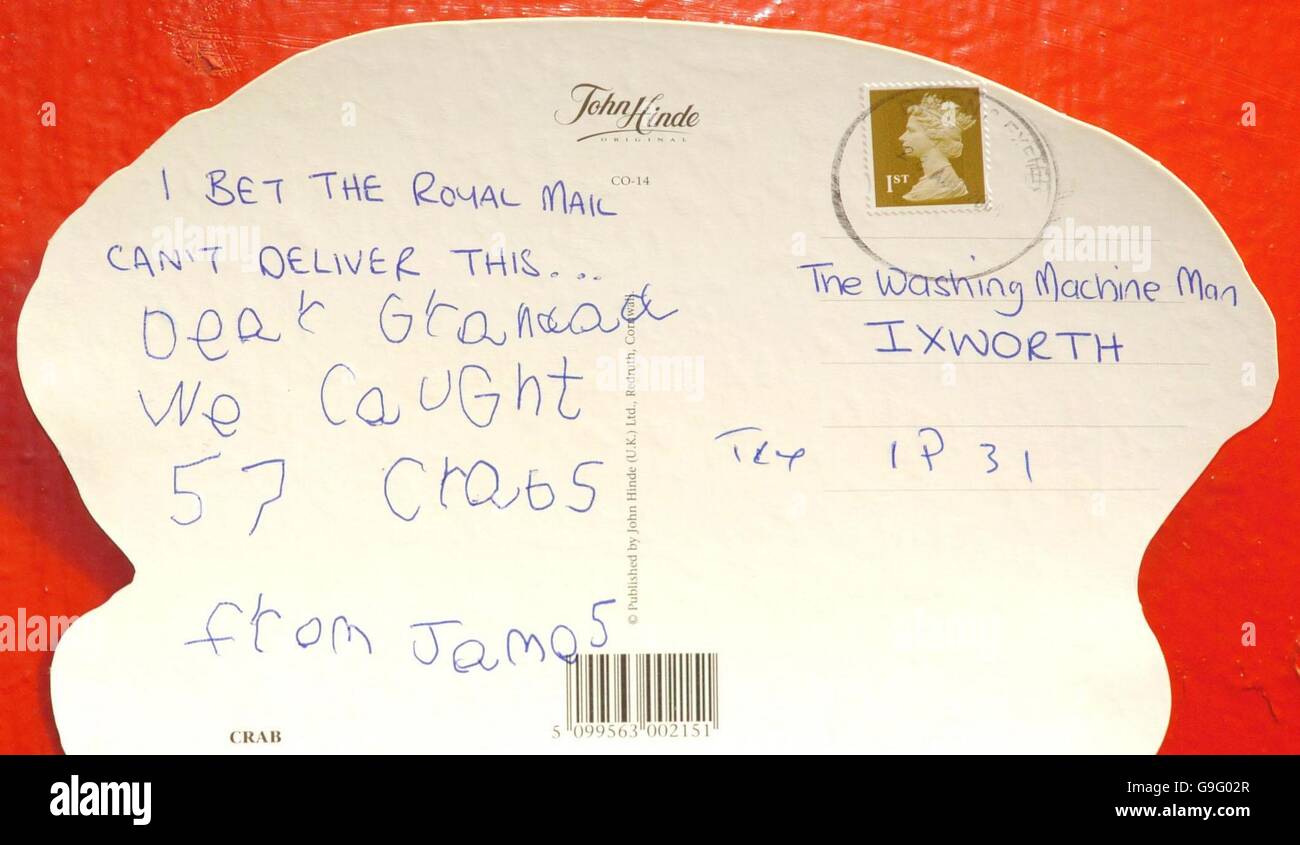 John Hinde
ORIGINAL
CO-14
1ST
I BET THE ROYAL MAIL
CAN'T DELIVER THIS....
Dear Grandad
We CauGht
57 Crabs
from James
The Washing Machine Man
IXWORTH
Try IP 31
© Published by John Hinde (U.K.) Ltd., Redruth, Cornwall.
CRAB
5 099563 002151
alamy
alamy
Image ID: G9G02R
www.alamy.com